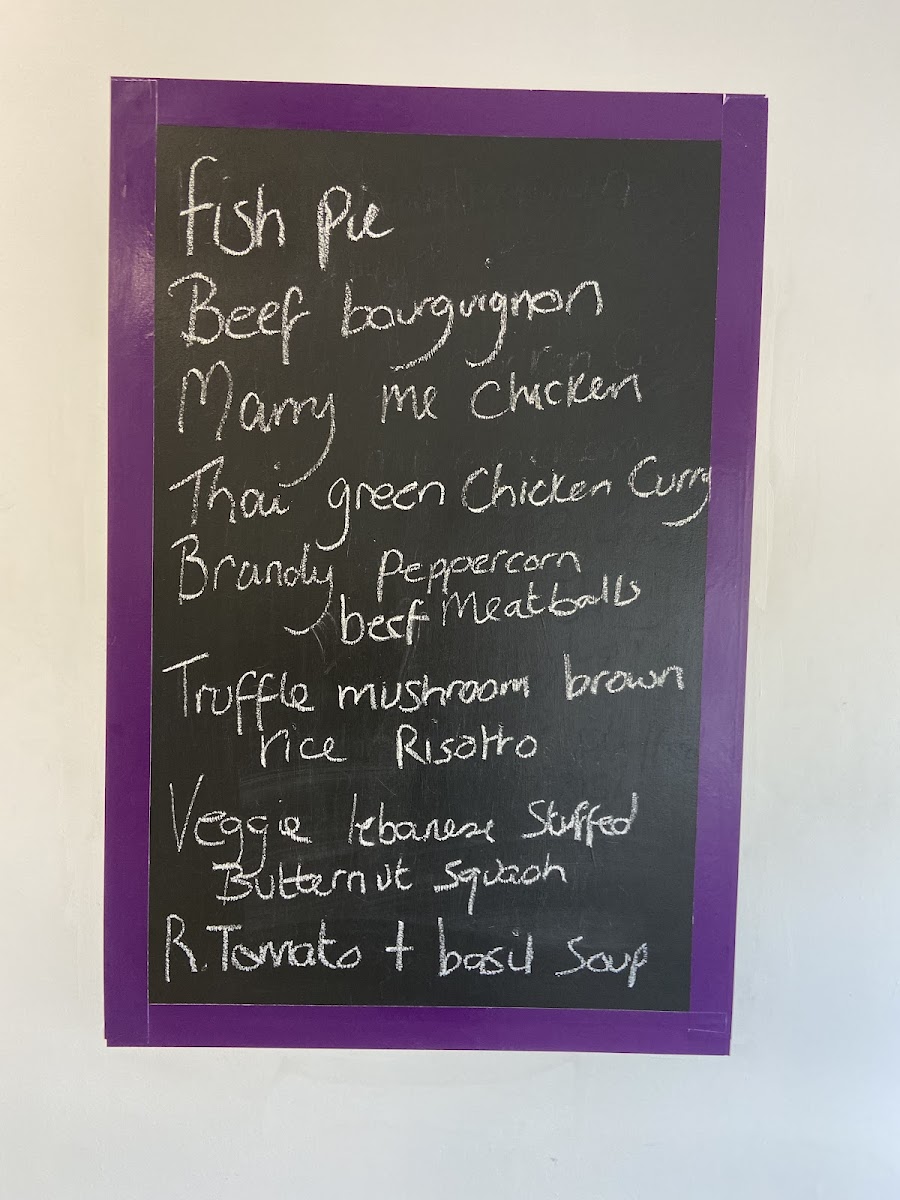 fish Pie
Beef bourguignon
Marry me chicken
Thai green Chicken Curry
Brandy Peppercorn
beef Meatballs
Truffle mushroom brown
rice Risotto
Veggie lebanese Stuffed
Butternut Squash
R.Tomato + basil Soup